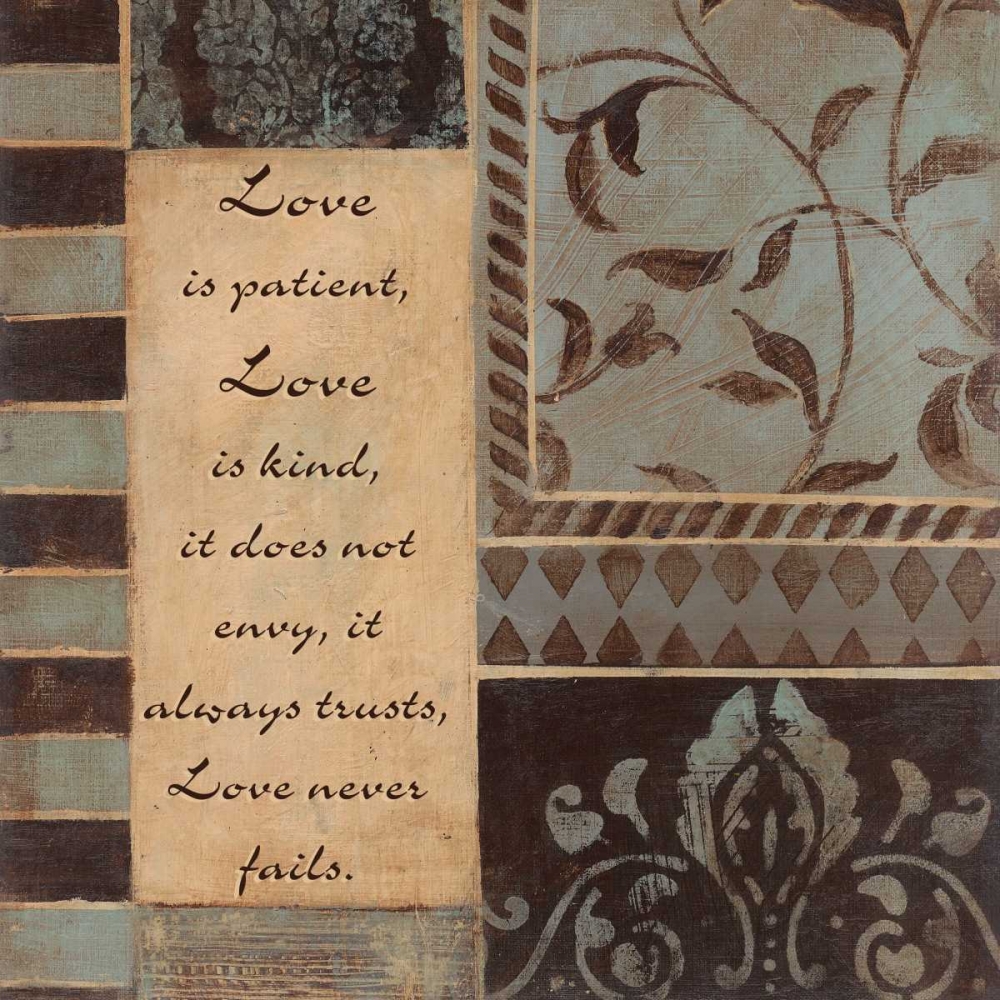 Love
is patient,
Love
is kind,
it does not
envy, it
always trusts,
Love never
fails.